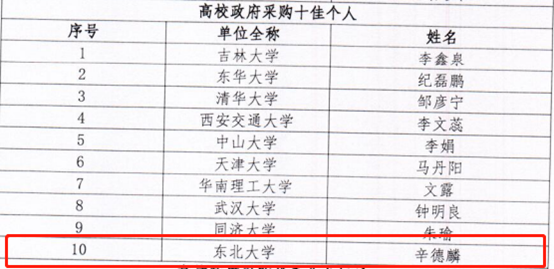 高校政府采购十佳个人
序号 单位全称 姓名
1 吉林大学 李鑫泉
2 东华大学 纪磊鹏
3 清华大学 邹彦宁
4 西安交通大学 李文蕊
5 中山大学 李娟
6 天津大学 马丹阳
7 华南理工大学 文露
8 武汉大学 钟明良
9 同济大学 朱瑜
10 东北大学 辛德麟